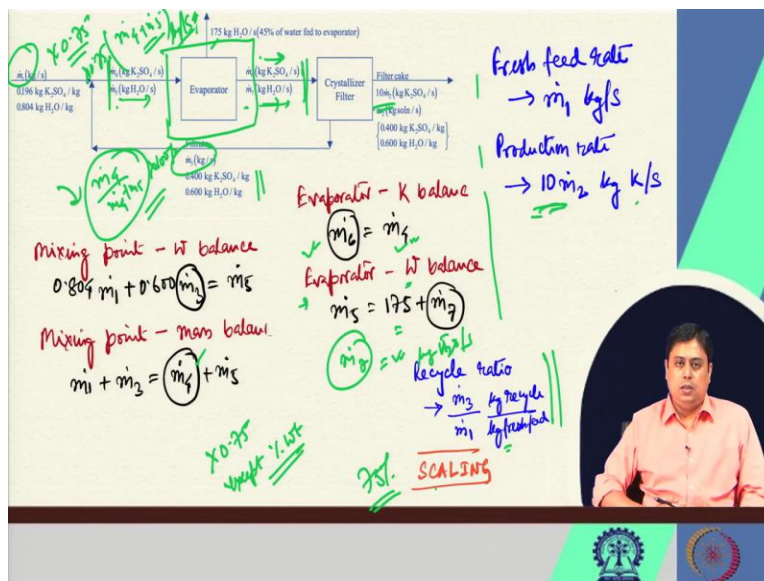 ×0.75
(ṁ4+ṁ5) kg/s
×0.75
175 kg H2O/s(45% of water fed to evaporator)
ṁ1(kg/s)
0.196 kg K2SO4/kg
0.804 kg H2O/kg
ṁ4(kg K2SO4/s)
ṁ5(kg H2O/s)
Evaporator
ṁ6(kg K2SO4/s)
ṁ7(kg H2O/s)
Crystallizer
Filter
Filter cake
10ṁ2(kg K2SO4/s)
ṁ2(kg soln/s)
0.400 kg K2SO4/kg
0.600 kg H2O/kg
ṁ3(kg/s)
0.400 kg K2SO4/kg
0.600 kg H2O/kg
ṁ4
ṁ4+ṁ5
Fresh feed rate
→ ṁ1 kg/s
Production rate
→ 10ṁ2 kg K/s
Mixing point - W balance
0.804 ṁ1 + 0.600 ṁ3 = ṁ5
Mixing point - mass balanc
ṁ1 + ṁ3 = ṁ4 + ṁ5
Evaporator - K balance
ṁ6 = ṁ4
Evaporator - W balance
ṁ5 = 175 + ṁ7
Recycle ratio
→ ṁ3/ṁ1 kg recycle/kg fresh feed
×0.75
except % wt
75% SCALING